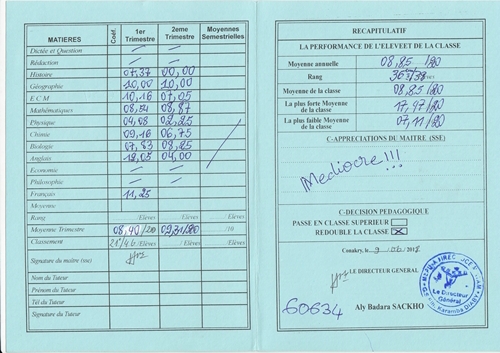 MATIERES Coéf. 1er Trimestre 2eme Trimestre Moyennes Semestrielles
Dictée et Question
Rédaction
Histoire 07,37 00,00
Géographie 10,00 10,00
E C M 10,16 07,05
Mathématiques 08,54 08,87
Physique 04,08 02,25
Chimie 09,16 06,75
Biologie 07,83 08,25
Anglais 12,05 04,00
Economie
Philosophie
Français 11,25
Moyenne
Rang /Elèves /Elèves /Elèves
Moyenne Trimestre 08,90/20 /20 /10
Classement /Elèves /Elèves
Signature du maître (sse)
Nom du Tuteur
Prénom du Tuteur
Tél du Tuteur
Signature du Tuteur
RECAPITULATIF
LA PERFORMANCE DE L'ELEVE ET DE LA CLASSE
Moyenne annuelle 08,85/20
Rang 36e/38
Moyenne de la classe 08,85/20
La plus forte Moyenne de la classe 17,97/20
La plus faible Moyenne de la classe 07,11/20
C-APPRECIATIONS DU MAITRE (SSE)
Mediocre!!!
C-DECISION PEDAGOGIQUE
PASSE EN CLASSE SUPERIEUR
REDOUBLE LA CLASSE X
Conakry, le
LE DIRECTEUR GENERAL
Le Directeur Général
60634
Aly Badara SACKHO